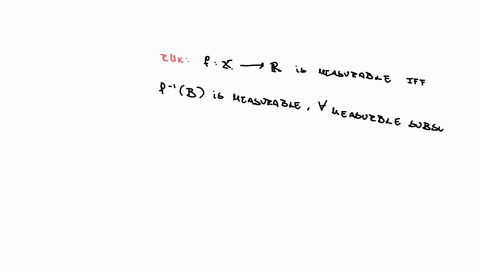 RMK: f: X → R IS MEASURABLE IFF
f⁻¹(B) IS MEASURABLE, ∀ MEASURABLE SUBSE